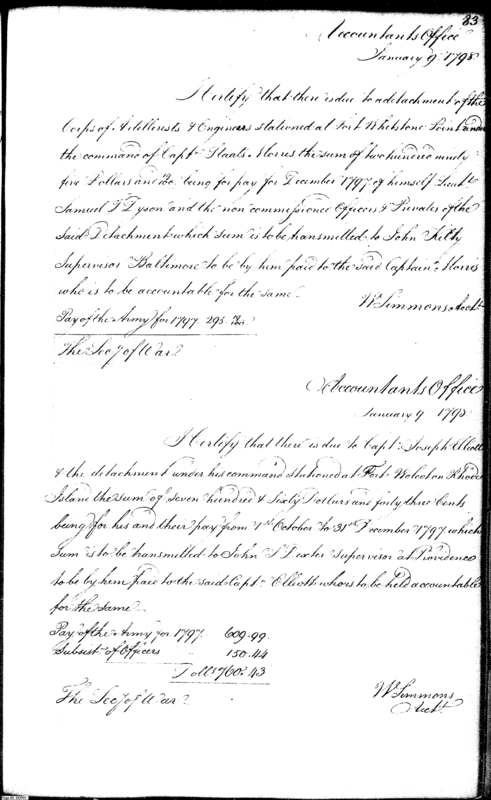 83
Accountants Office
January 9 1798
I Certify that there is due to a detachment of the
Corps of Artillerists & Engineers stationed at Fort Whetstone Point under
the command of Capt Staats Morris the sum of two hundred ninety
five Dollars and being for pay for December 1797 of himself Lieut
Samuel T Dyson and the non commissioned Officers & Privates of the
said Detachment which sum is to be transmitted to John Kilty
Supervisor Baltimore to be by him paid to the said Captain Morris
who is to be accountable for the same
Wm Simmons Acct
Pay of the Army for 1797 295
The Secy of War
Accountants Office
January 9 1798
I Certify that there is due to Capt Joseph Elliott
& the detachment under his command stationed at Fort Wolcott on Rhode
Island the sum of seven hundred & Sixty Dollars and forty three Cents
being for his and their pay from 1st October to 31st December 1797 which
sum is to be transmitted to John S Dexter Supervisor at Providence
to be by him paid to the said Capt Elliott who is to be held accountable
for the same
Pay of the Army for 1797 609.99
Subsist of Officers 150.44
Dolls 760.43
Wm Simmons
Acct
The Secy of War